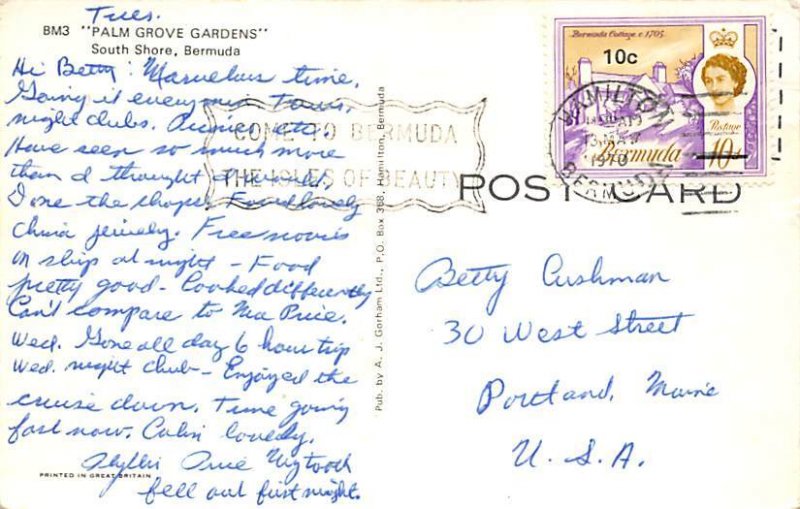 Tues.
BM3 "PALM GROVE GARDENS"
South Shore, Bermuda
Hi Betty: Marvelous time.
Going it every min. Tours,
night clubs. etc.
Have seen so much more
than I thought I would.
the shops. Found lovely
china jewelry. Free movies
on ship at night - Food
pretty good - Cooked differently
Can't compare to Ma Price.
Wed. Gone all day 6 hour trip
Wed. night club - Enjoyed the
cruise down. Time going
fast now. Cabin lovely.
Phyllis Price My tooth
fell out first night.
PRINTED IN GREAT BRITAIN
Pub. by A. J. Gorham Ltd., P.O. Box 368, Hamilton, Bermuda
COME TO BERMUDA
THE ISLES OF BEAUTY
Bermuda Cottage c 1705
10c
Postage
Bermuda 10d
HAMILTON
1970
BERMUDA
POST CARD
Betty Cushman
30 West Street
Portland, Maine
U. S. A.